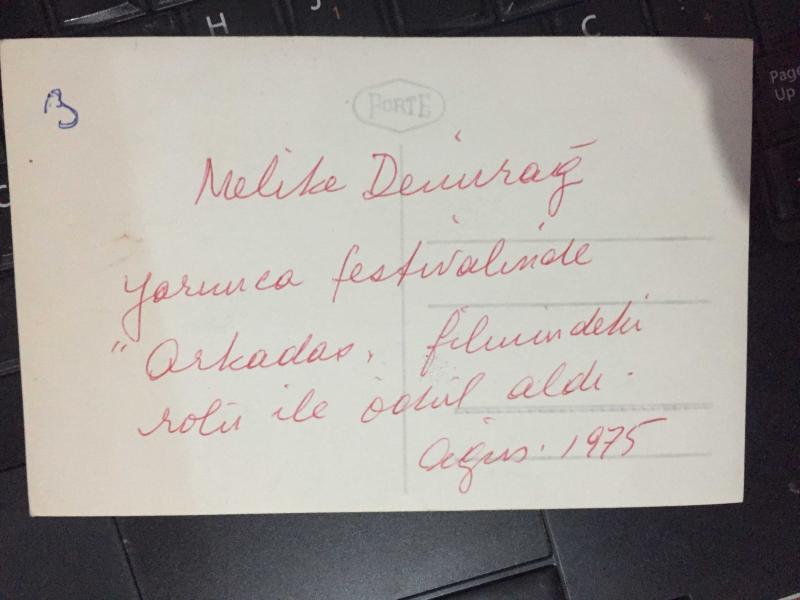 H
J
1
C
Page
Up
C
3
PORTE
Melike Demirağ
Yarımca festivalinde
"Arkadaş, filmindeki
rolü ile ödül aldı.
Ağus. 1975